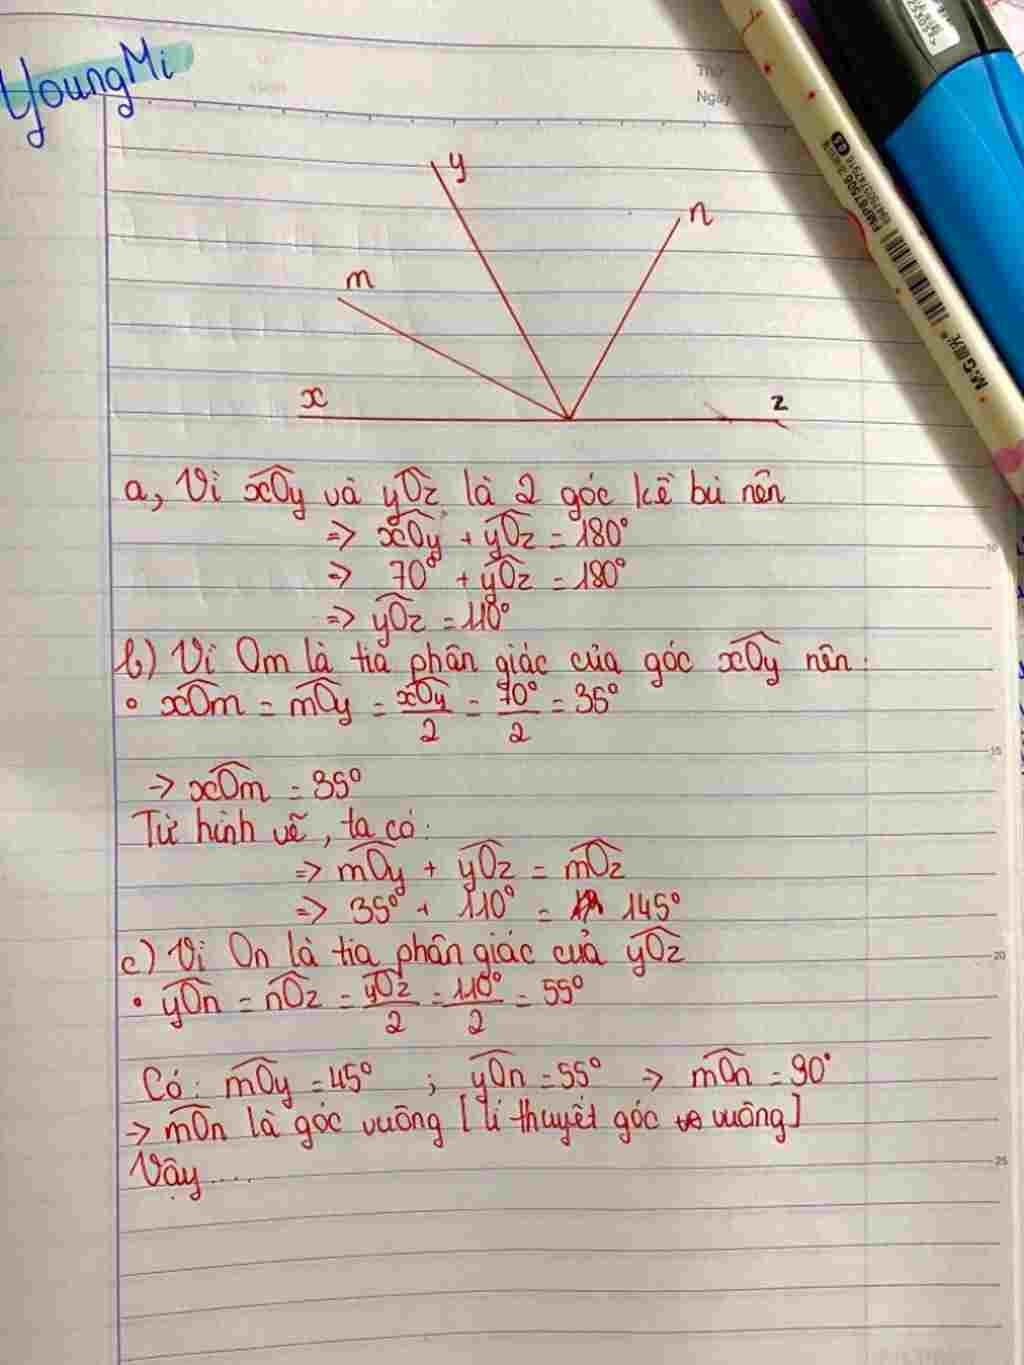 YoungMi
Thứ
Ngày
y
n
m
x
z
a, Vì xOy và yOz là 2 góc kề bù nên
=> xOy + yOz = 180°
=> 70° + yOz = 180°
=> yOz = 110°
b) Vì Om là tia phân giác của góc xOy nên:
• xOm = mOy = xOy/2 = 70°/2 = 35°
-> xOm = 35°
Từ hình vẽ, ta có:
=> mOy + yOz = mOz
=> 35° + 110° = 145°
c) Vì On là tia phân giác của yOz
• yOn = nOz = yOz/2 = 110°/2 = 55°
Có: mOy = 45° ; yOn = 55° -> mOn = 90°
-> mOn là góc vuông [lí thuyết góc vuông]
Vậy....
10
15
20
25
M&G